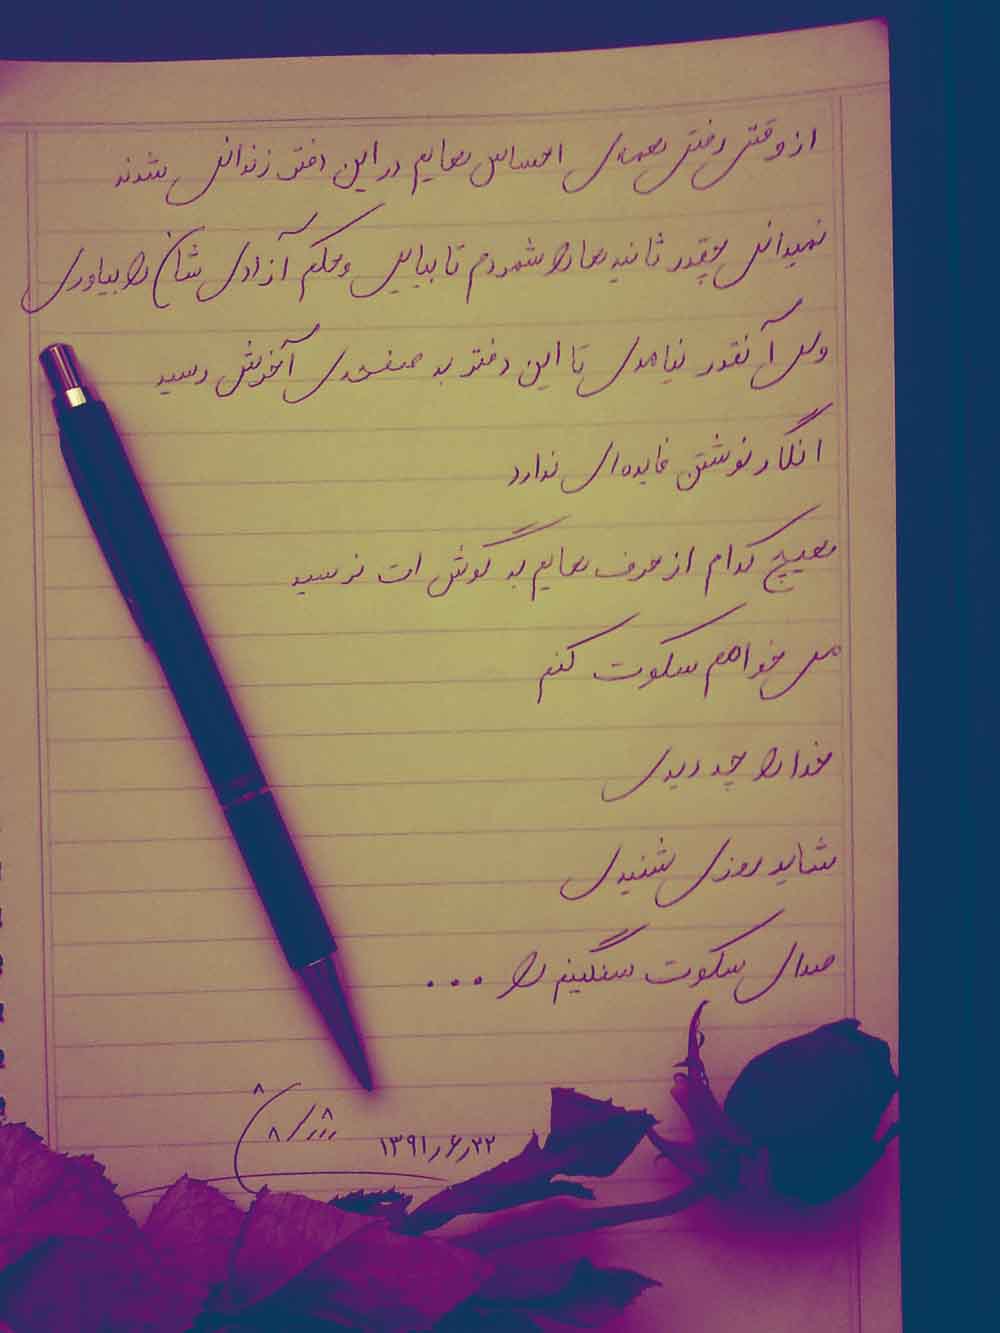 از وقتی رفتی همه‌ی احساس هایم در این دفتر زندانی شدند
نمیدانی چقدر ثانیه ها را شمردم تا بیایی و حکم آزادی شان را بیاوری
ولی آنقدر نیامدی تا این دفتر به صفحه‌ی آخرش رسید
انگار نوشتن فایده ای ندارد
هیچ کدام از حرف هایم به گوش ات نرسید
می خواهم سکوت کنم
خدا را چه دیدی
شاید روزی شنیدی
صدای سکوت سنگینم را ...
۱۳۹۱٫۶٫۲۲